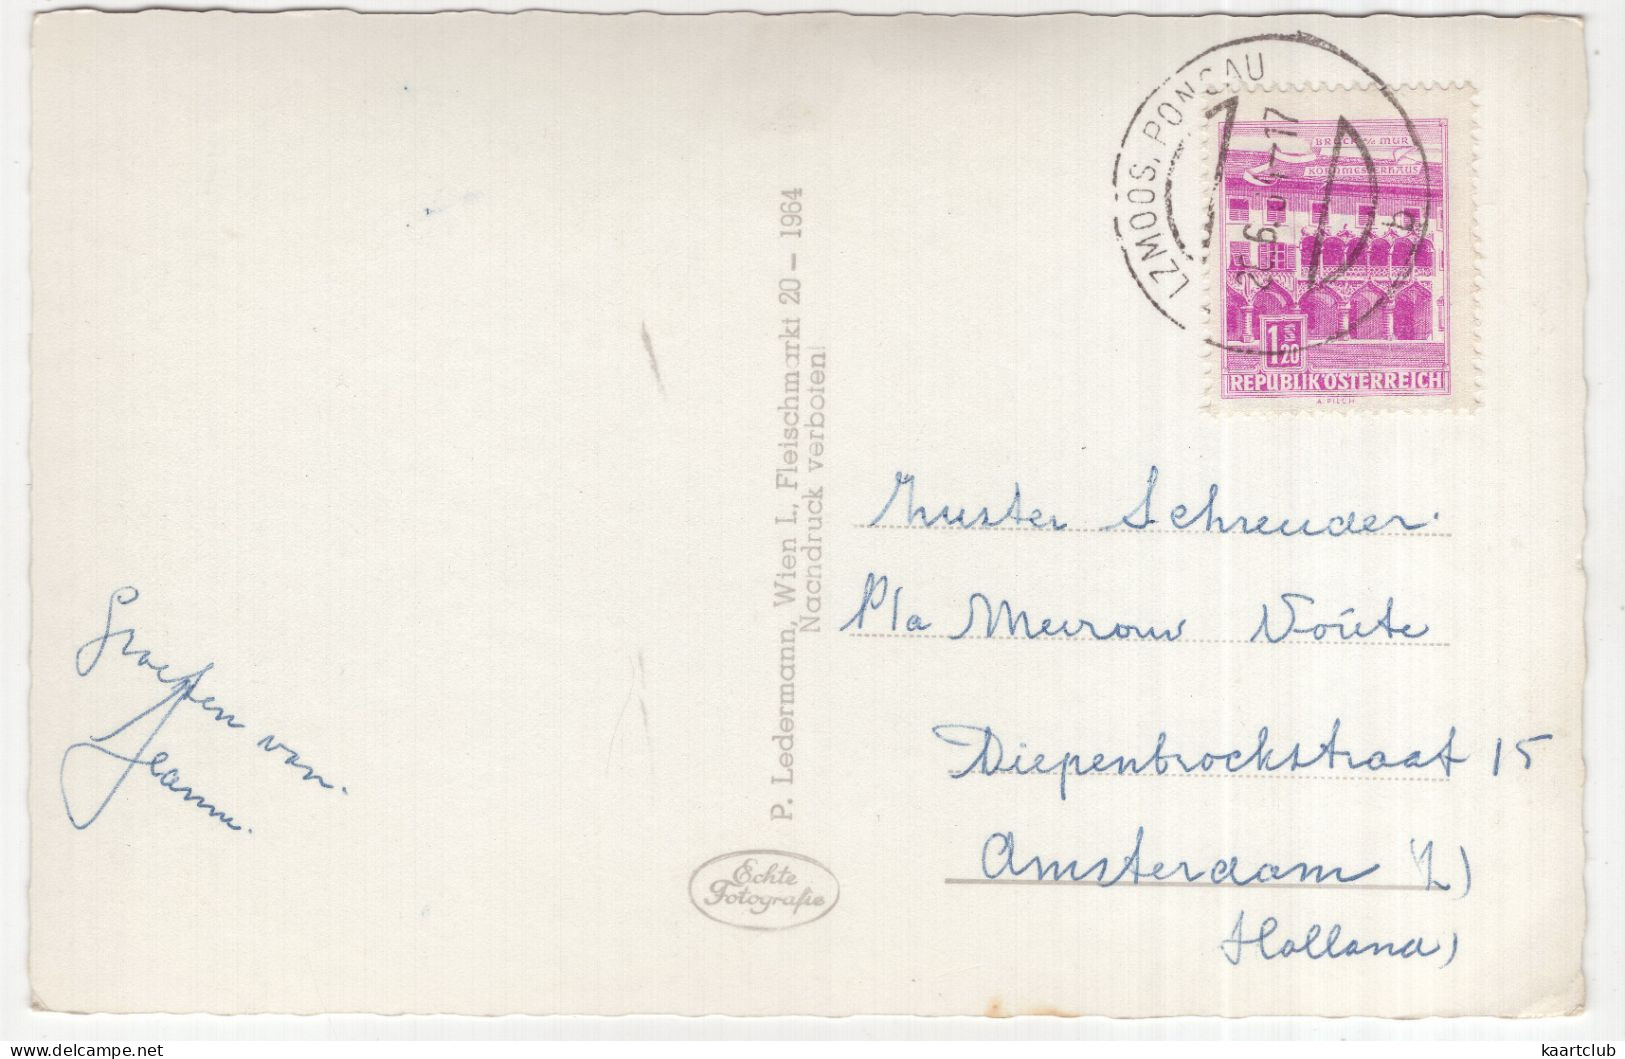 LZMOOS, PONGAU
6.64-17
b
BRUCK a/d MUR
KORNMESSERHAUS
1 S 20
REPUBLIK ÖSTERREICH
A. PILCH
P. Ledermann, Wien I., Fleischmarkt 20 – 1964
Nachdruck verboten!
Echte
Fotografie
Groeten van
Jeanne.
Zuster Schreuder.
P/a Mevrouw Voûte
Diepenbrockstraat 15
Amsterdam (Z)
Holland)
delcampe.net
kaartclub